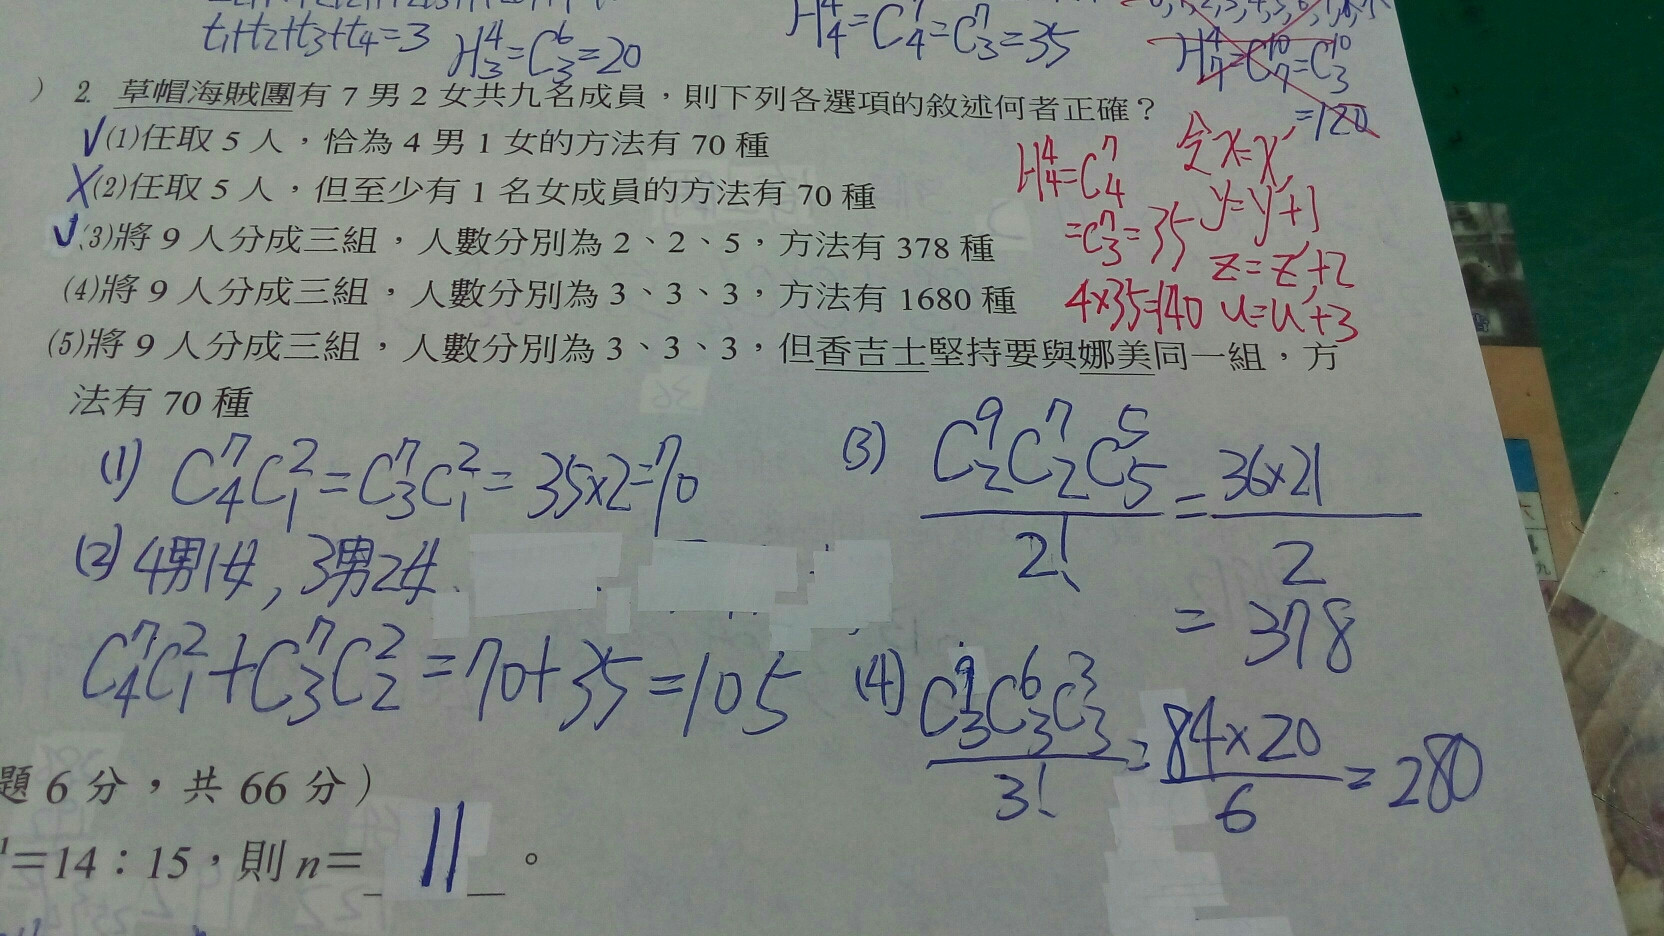 t₁+t₂+t₃+t₄=3
H⁴₃=C⁶₃=20
H⁴₄=C⁷₄=C⁷₃=35
H⁴₇=C¹⁰₇=C¹⁰₃
=120
) 2. 草帽海賊團有 7 男 2 女共九名成員,則下列各選項的敘述何者正確?
✓(1)任取 5 人,恰為 4 男 1 女的方法有 70 種
X(2)任取 5 人,但至少有 1 名女成員的方法有 70 種
✓(3)將 9 人分成三組,人數分別為 2、2、5,方法有 378 種
(4)將 9 人分成三組,人數分別為 3、3、3,方法有 1680 種
(5)將 9 人分成三組,人數分別為 3、3、3,但香吉士堅持要與娜美同一組,方
法有 70 種
H⁴₄=C⁷₄
=C⁷₃=35
4×35=140
令x=x'
y=y'+1
z=z'+2
u=u'+3
(1) C⁷₄C²₁=C⁷₃C²₁=35×2=70
(2) 4男1女, 3男2女.
C⁷₄C²₁+C⁷₃C²₂=70+35=105
(3) C⁹₂C⁷₂C⁵₅/2! = 36×21/2
=378
(4) C⁹₃C⁶₃C³₃/3! = 84×20/6 = 280
題 6 分,共 66 分)
¹=14:15,則 n=_11_。